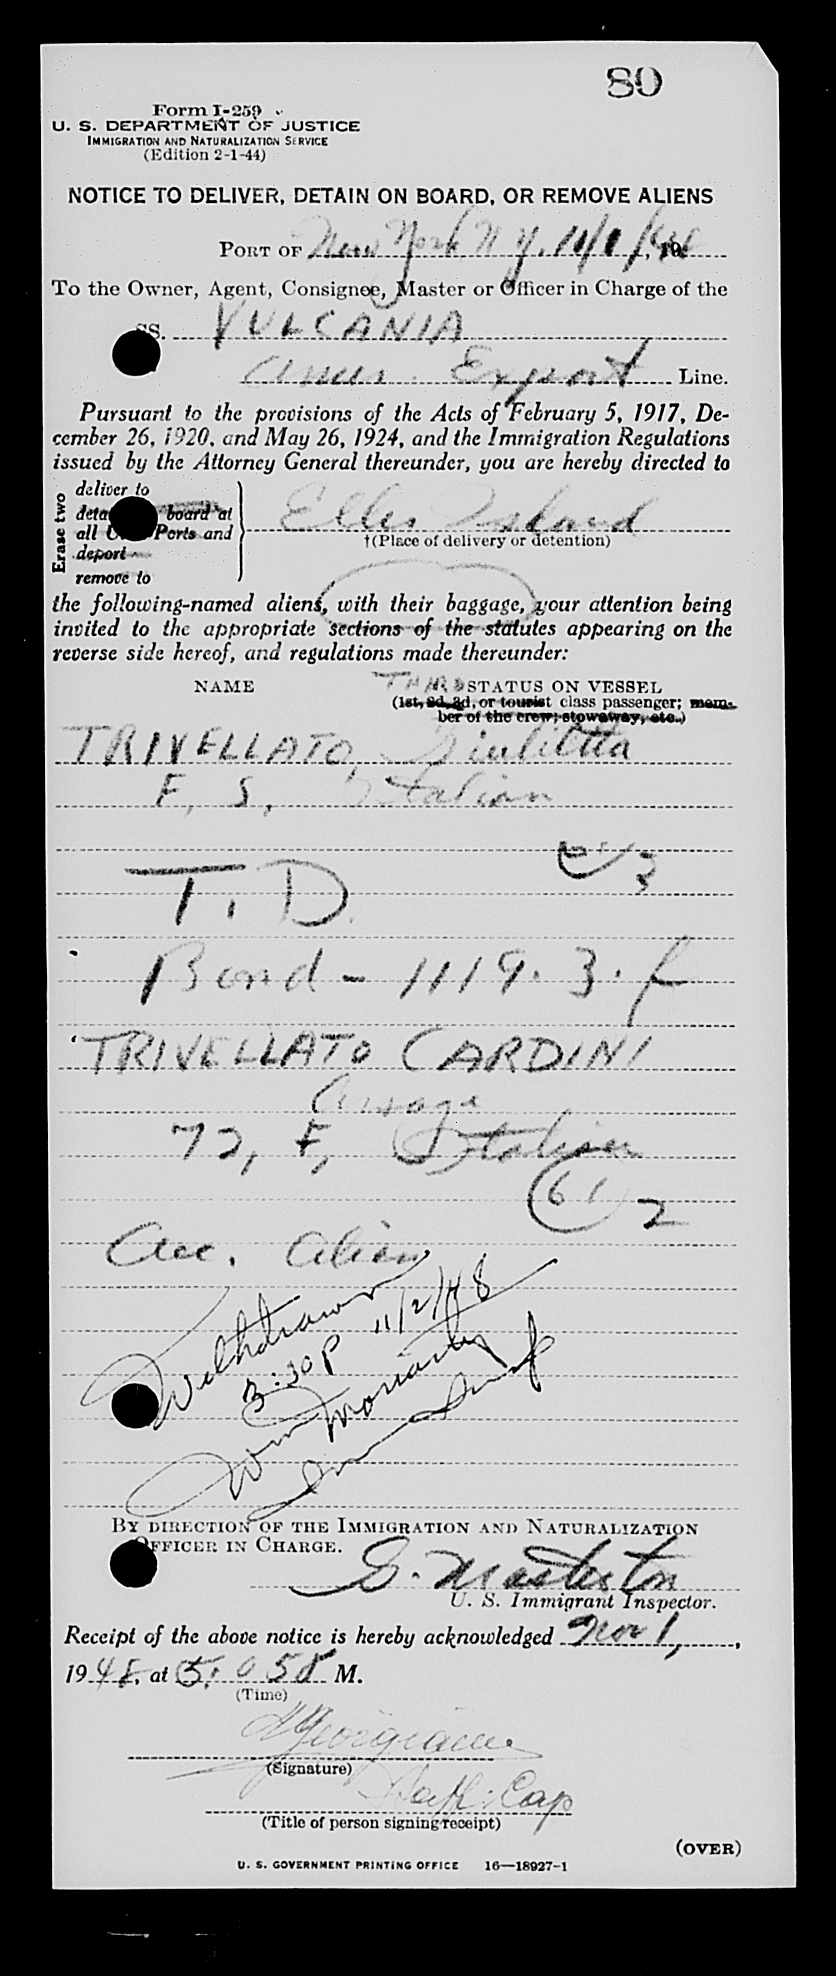 80
Form I-259
U. S. DEPARTMENT OF JUSTICE
IMMIGRATION AND NATURALIZATION SERVICE
(Edition 2-1-44)
NOTICE TO DELIVER, DETAIN ON BOARD, OR REMOVE ALIENS
PORT OF New York N Y, 11/1/48, 19
To the Owner, Agent, Consignee, Master or Officer in Charge of the
SS. VULCANIA
Amer. Export Line.
Pursuant to the provisions of the Acts of February 5, 1917, De-
cember 26, 1920, and May 26, 1924, and the Immigration Regulations
issued by the Attorney General thereunder, you are hereby directed to
Erase two
deliver to
board at
all Ports and
deport
remove to
Ellis Island
†(Place of delivery or detention)
the following-named aliens, with their baggage, your attention being
invited to the appropriate sections of the statutes appearing on the
reverse side hereof, and regulations made thereunder:
NAME THIRD STATUS ON VESSEL
(1st, 2d, 3d, or tourist class passenger; mem-
ber of the crew; stowaway, etc.)
TRIVELLATO, Giulietta
F, S, Italian
3
T. D.
Bond - 1119. 3. f
TRIVELLATO CARDINI
72, F, Italian
61 2
Acc. Alien
Withdrawn
3:30 P 11/2/48
Wm Moriarty
By DIRECTION OF THE IMMIGRATION AND NATURALIZATION
OFFICER IN CHARGE.
S. Masterton
U. S. Immigrant Inspector.
Receipt of the above notice is hereby acknowledged Nov 1,
1948, at 5: M.
(Time)
(Signature)
Cap
(Title of person signing receipt)
(OVER)
U. S. GOVERNMENT PRINTING OFFICE 16—18927-1